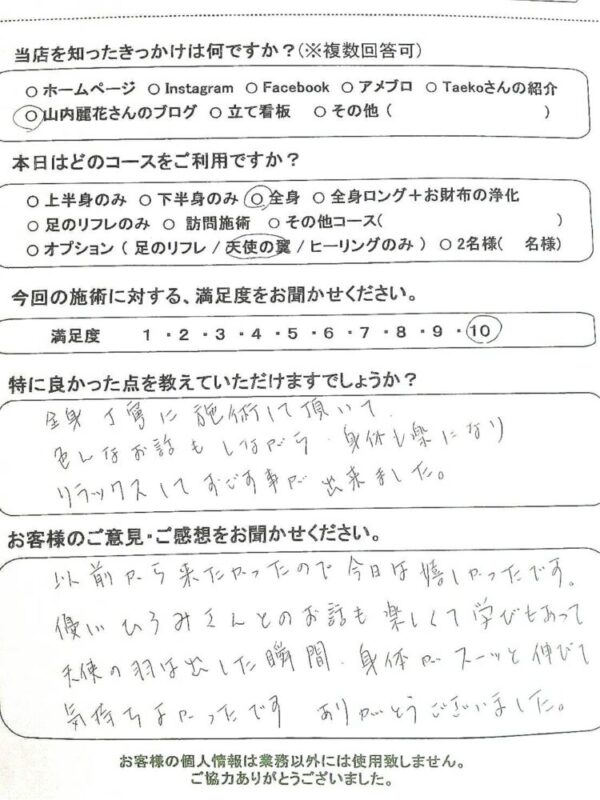 当店を知ったきっかけは何ですか？(※複数回答可)
○ ホームページ ○ Instagram ○ Facebook ○ アメブロ ○ Taekoさんの紹介
○山内麗花さんのブログ ○ 立て看板 ○ その他 ( )
本日はどのコースをご利用ですか？
○ 上半身のみ ○ 下半身のみ ○ 全身 ○ 全身ロング＋お財布の浄化
○ 足のリフレのみ ○ 訪問施術 ○ その他コース( )
○オプション ( 足のリフレ / 天使の翼 / ヒーリングのみ ) ○ 2名様( 名様)
今回の施術に対する、満足度をお聞かせください。
満足度 1 ・ 2 ・ 3 ・ 4 ・ 5 ・ 6 ・ 7 ・ 8 ・ 9 ・ 10
特に良かった点を教えていただけますでしょうか？
全身 丁寧に 施術して頂いて
色んなお話もしながら、身体も楽になり
リラックスしてすごす事が出来ました。
お客様のご意見・ご感想をお聞かせください。
以前から来たかったので今日は嬉しかったです。
優しいひろみさんとのお話も楽しくて学びもあって
天使の羽は出した瞬間、身体がスーッと伸びて
気持ちよかったです ありがとうございました。
お客様の個人情報は業務以外には使用致しません。
ご協力ありがとうございました。